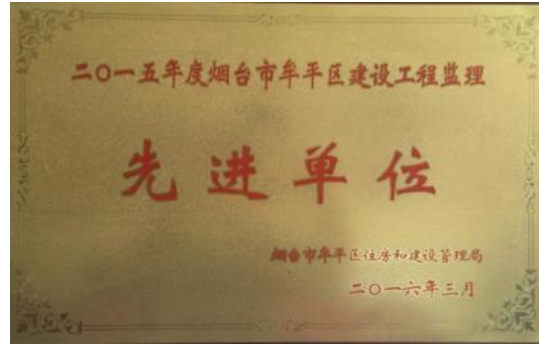 二〇一五年度烟台市牟平区建设工程监理
先进单位
烟台市牟平区住房和建设管理局
二〇一六年三月